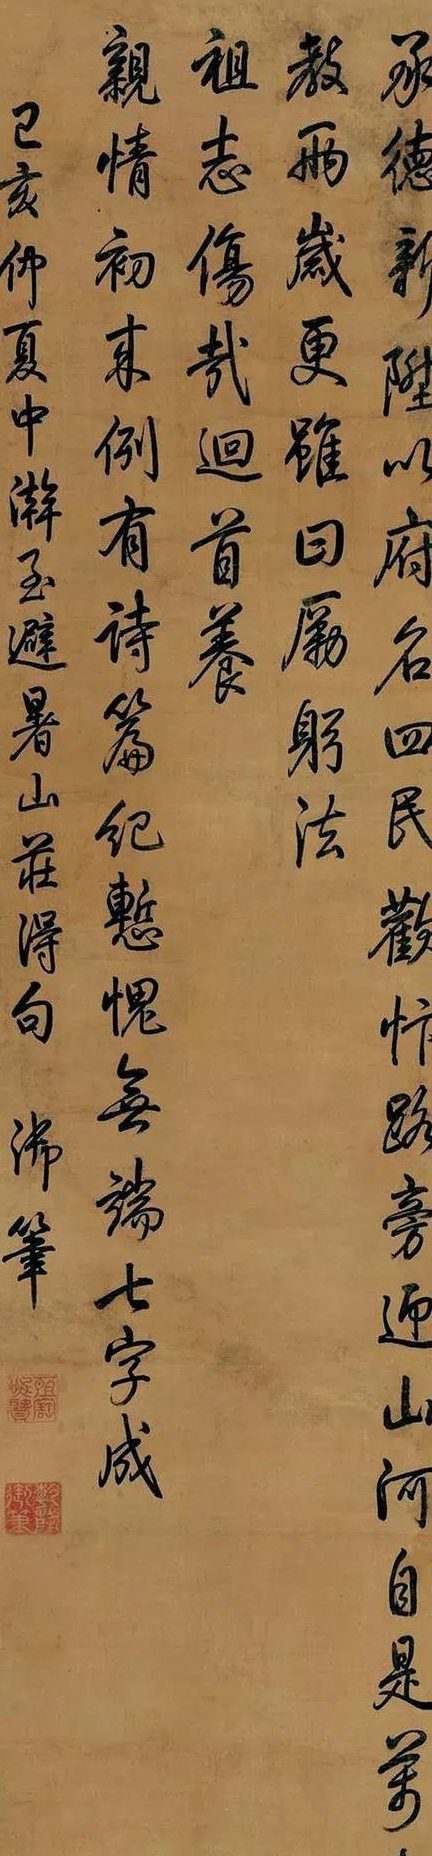 承德新陞以府名四民歡忭路旁迎山河自是萬
教兩歲更雖曰勵躬法
祖志傷哉迴首養
親情初來例有詩篇紀慙愧無端七字成
己亥仲夏中澣至避暑山莊得句 御筆
乾隆
御筆